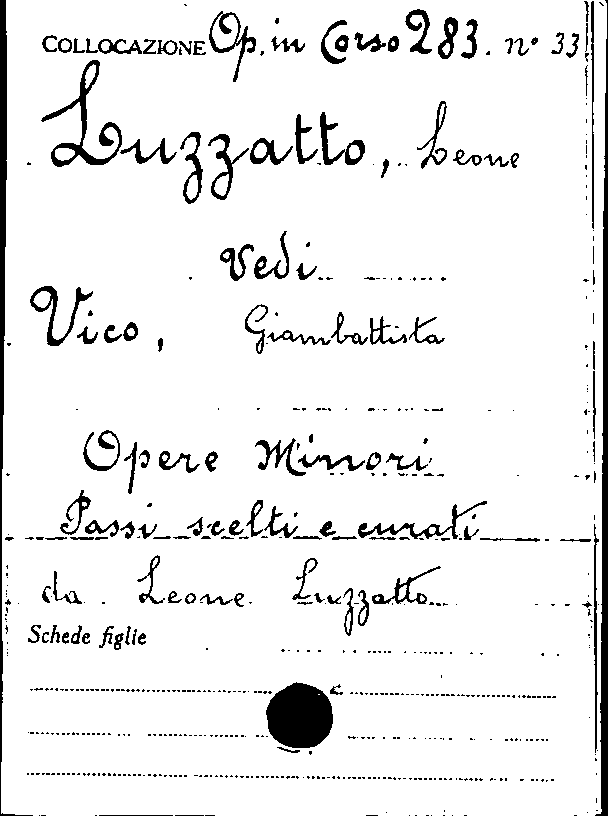 COLLOCAZIONE Op. in Corso 283. n° 33
Luzzatto, Leone
Vedi
Vico, Giambattista
Opere Minori
Passi scelti e curati
da Leone Luzzatto
Schede figlie